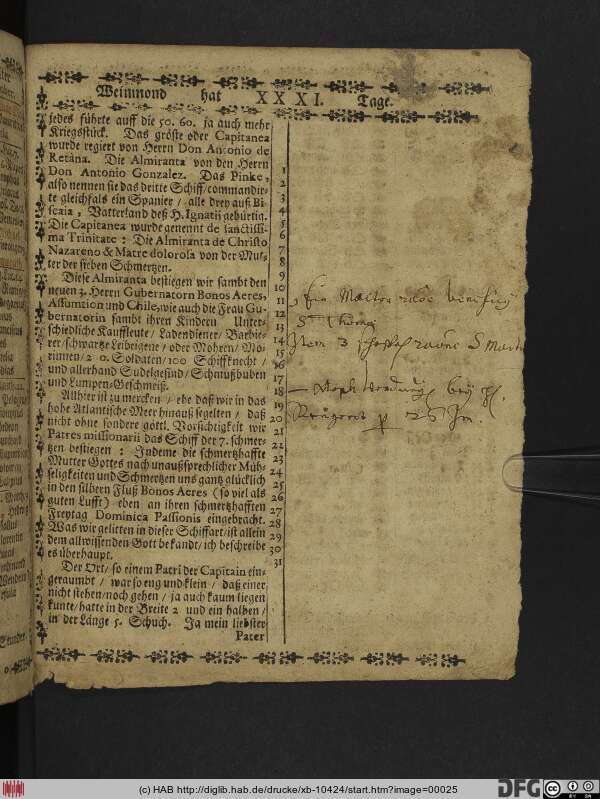 Weinmond hat XXXI. Tage.
jedes führte auff die 50. 60. ja auch mehr
Kriegsstück. Das gröste oder Capitanea
wurde regiert von Herrn Don Antonio de
Retana. Die Almiranta von den Herrn
Don Antonio Gonzalez. Das Pinke,
also nennen sie das dritte Schiff/commandir-
te gleichfals ein Spanier / alle drey auß Bi-
scaia, Vatterland deß H. Ignatii gebürtig.
Die Capitanea wurde genennt de sanctissi-
ma Trinitate: Die Almiranta de Christo
Nazareno & Matre dolorosa von der Mut-
ter der sieben Schmertzen.
Diese Almiranta bestiegen wir sambt den
neuen 3. Herrn Gubernatorn Bonos Aeres,
Assumtion und Chile, wie auch die Frau Gu-
bernatorin sambt ihren Kindern Unter-
schiedliche Kauffleute/ Ladendiener/ Barbie-
rer/schwartze Leibeigene/ oder Mohren/ Mo-
rinnen/ 2 0. Soldaten/100 Schiffknecht /
und allerhand Sudelgesind/Schmutzbuden
und Lumpen-Geschmeiß.
Allhier ist zu mercken / ehe daß wir in das
hohe Atlantische Meer hinauß segelten / daß
nicht ohne sondere göttl. Vorsichtigkeit wir
Patres missionarii das Schiff der 7. schmer-
tzen bestiegen: Indeme die schmertzhaffte
Mutter Gottes nach unaußsprechlicher Müh-
seligkeiten und Schmertzen uns gantz glücklich
in den silbern Fluß Bonos Aeres (so viel als
guten Lufft) eben an ihren schmertzhafften
Freytag Dominica Passionis eingebracht.
Was wir gelitten in dieser Schiffart/ist allein
dem allwissenden Gott bekandt/ich beschreibe
es überhaupt.
Der Ort/ so einem Patri der Capitain ein-
geraumbt / war so eng und klein / daß einer
nicht stehen/noch gehen / ja auch kaum liegen
kunte/hatte in der Breite 2 und ein halben/
in der Länge 5. Schuch. Ja mein liebster
Pater
1
2
3
4
5
6
7
8
9
10
11
12
13
14
15
16
17
18
19
20
21
22
23
24
25
26
27
28
29
30
31
(c) HAB http://diglib.hab.de/drucke/xb-10424/start.htm?image=00025
DFG